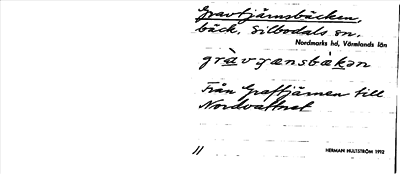 Gravtjärnsbäcken,
bäck, Silbodals sn.
Nordmarks hd, Värmlands län
gràvȷænsbàkən
Från Graftjärnen till
Nordvattnet
11
HERMAN HULTSTRÖM 1912